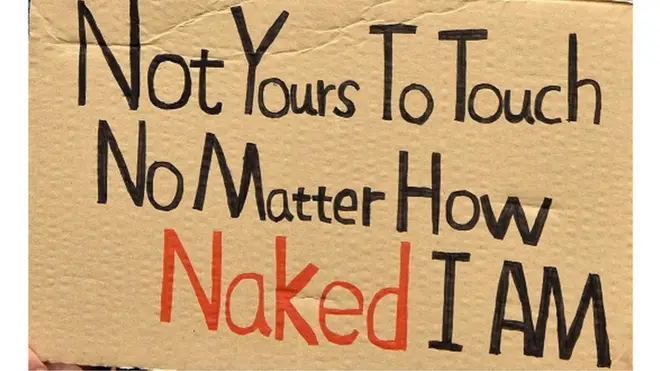 Not Yours To Touch
No Matter How
Naked I AM